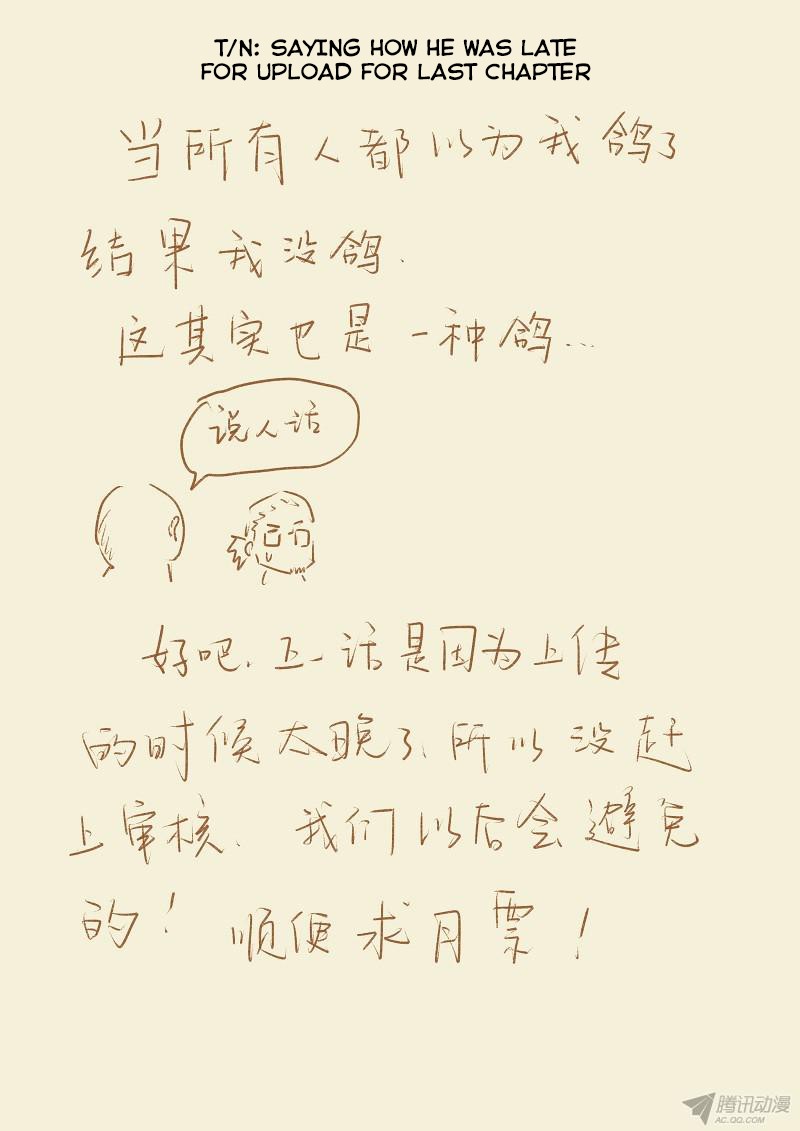 T/N: SAYING HOW HE WAS LATE
FOR UPLOAD FOR LAST CHAPTER
当所有人都以为我鸽了
结果我没鸽.
这其实也是一种鸽...
说人话
好吧、五一话是因为上传
的时候太晚了、所以没赶
上审核、我们以后会避免
的！顺便求月票！
腾讯动漫
AC.QQ.COM